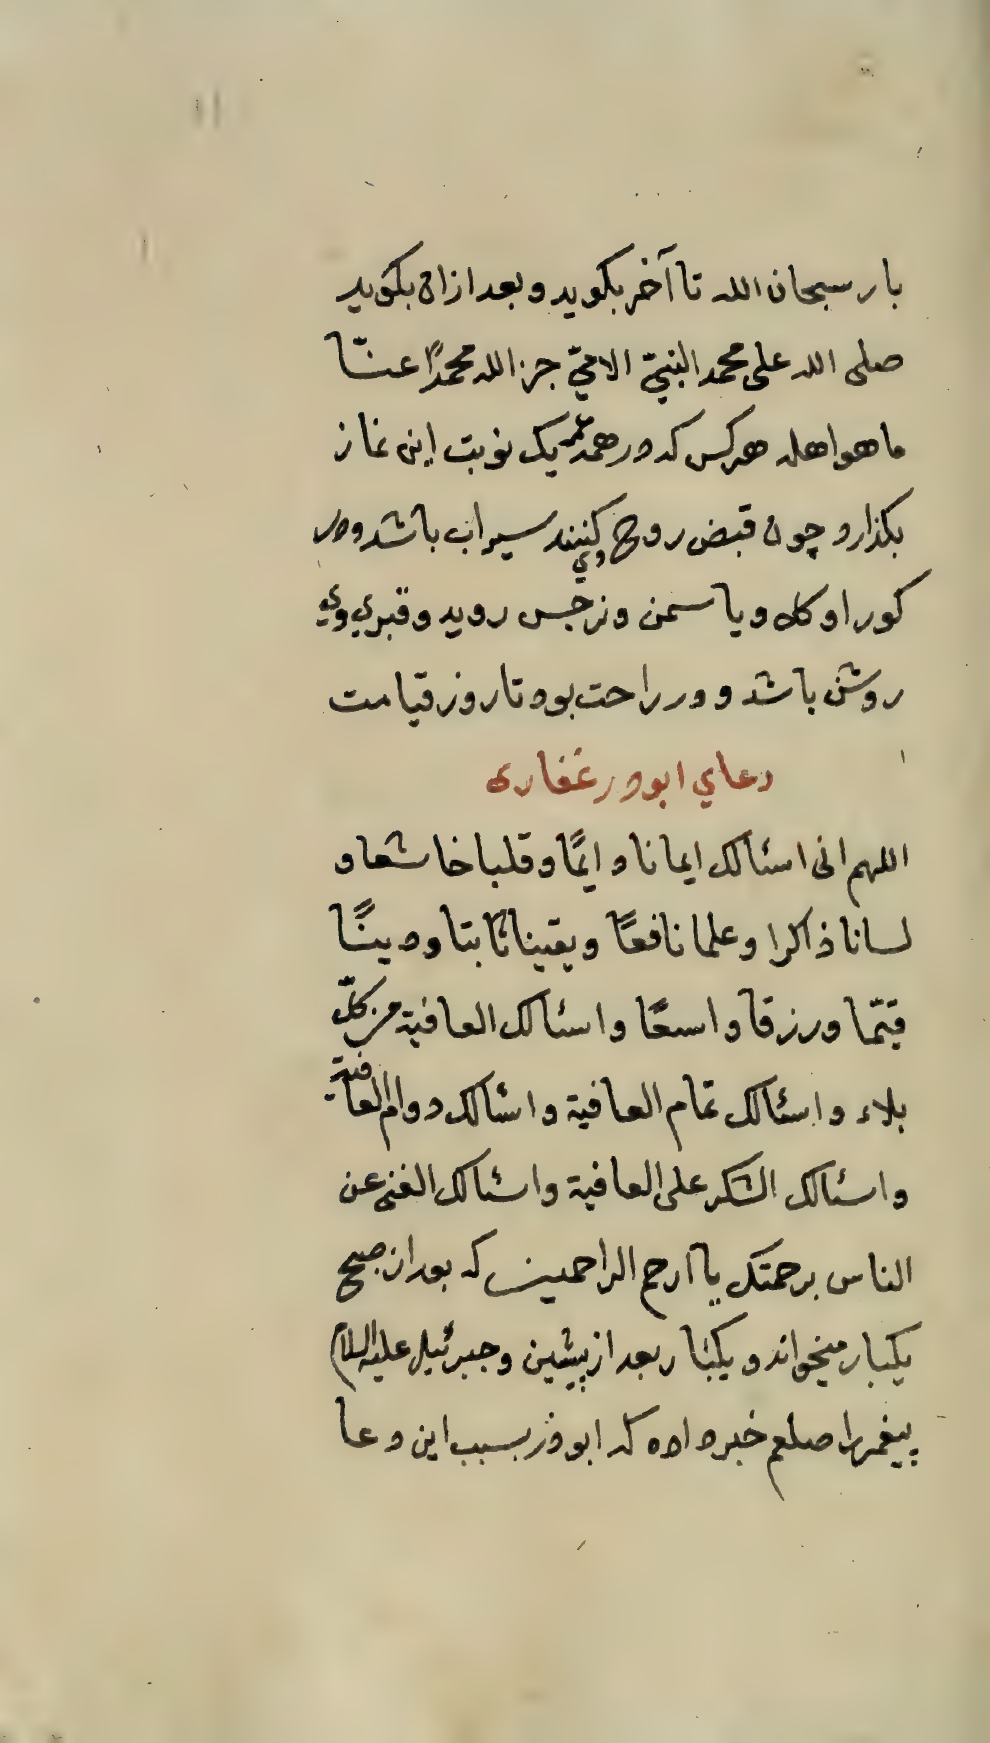 بار سبحان الله تا آخر بکوید و بعد ازان بکوید
صلی الله علی محمد النبیّ الامیّ جز الله محمدًا عنّا
ما هو اهله هرکس که در همه عمر یک نوبت این نماز
بکذارد چون قبض روح وي کنند سیراب باشد و در
کور او کل و یاسمن و نرجس روید و قبر وي
روشن باشد و در راحت بود تا روز قیامت
دعاي ابودر غفاری
اللهم انی اسئالک ایمانا دایمًا و قلبا خاشعا و
لسانا ذاکرا و علما نافعًا و یقینا ثابتا و دینًا
قیّما و رزقا واسعًا و اسئالک العافیة من کلّ
بلاء و اسئالک تمام العافیة و اسئالک دوام العافیة
و اسئالک الشکر علی العافیة و اسئالک الغنی عن
الناس برحمتک یا ارحم الراحمین که بعد از صبح
یکبار میخواند و یکبار بعد از پیشین و جبرئیل علیه السلام
پیغمبر را صلعم خبر داده که ابوذر بسبب این دعا